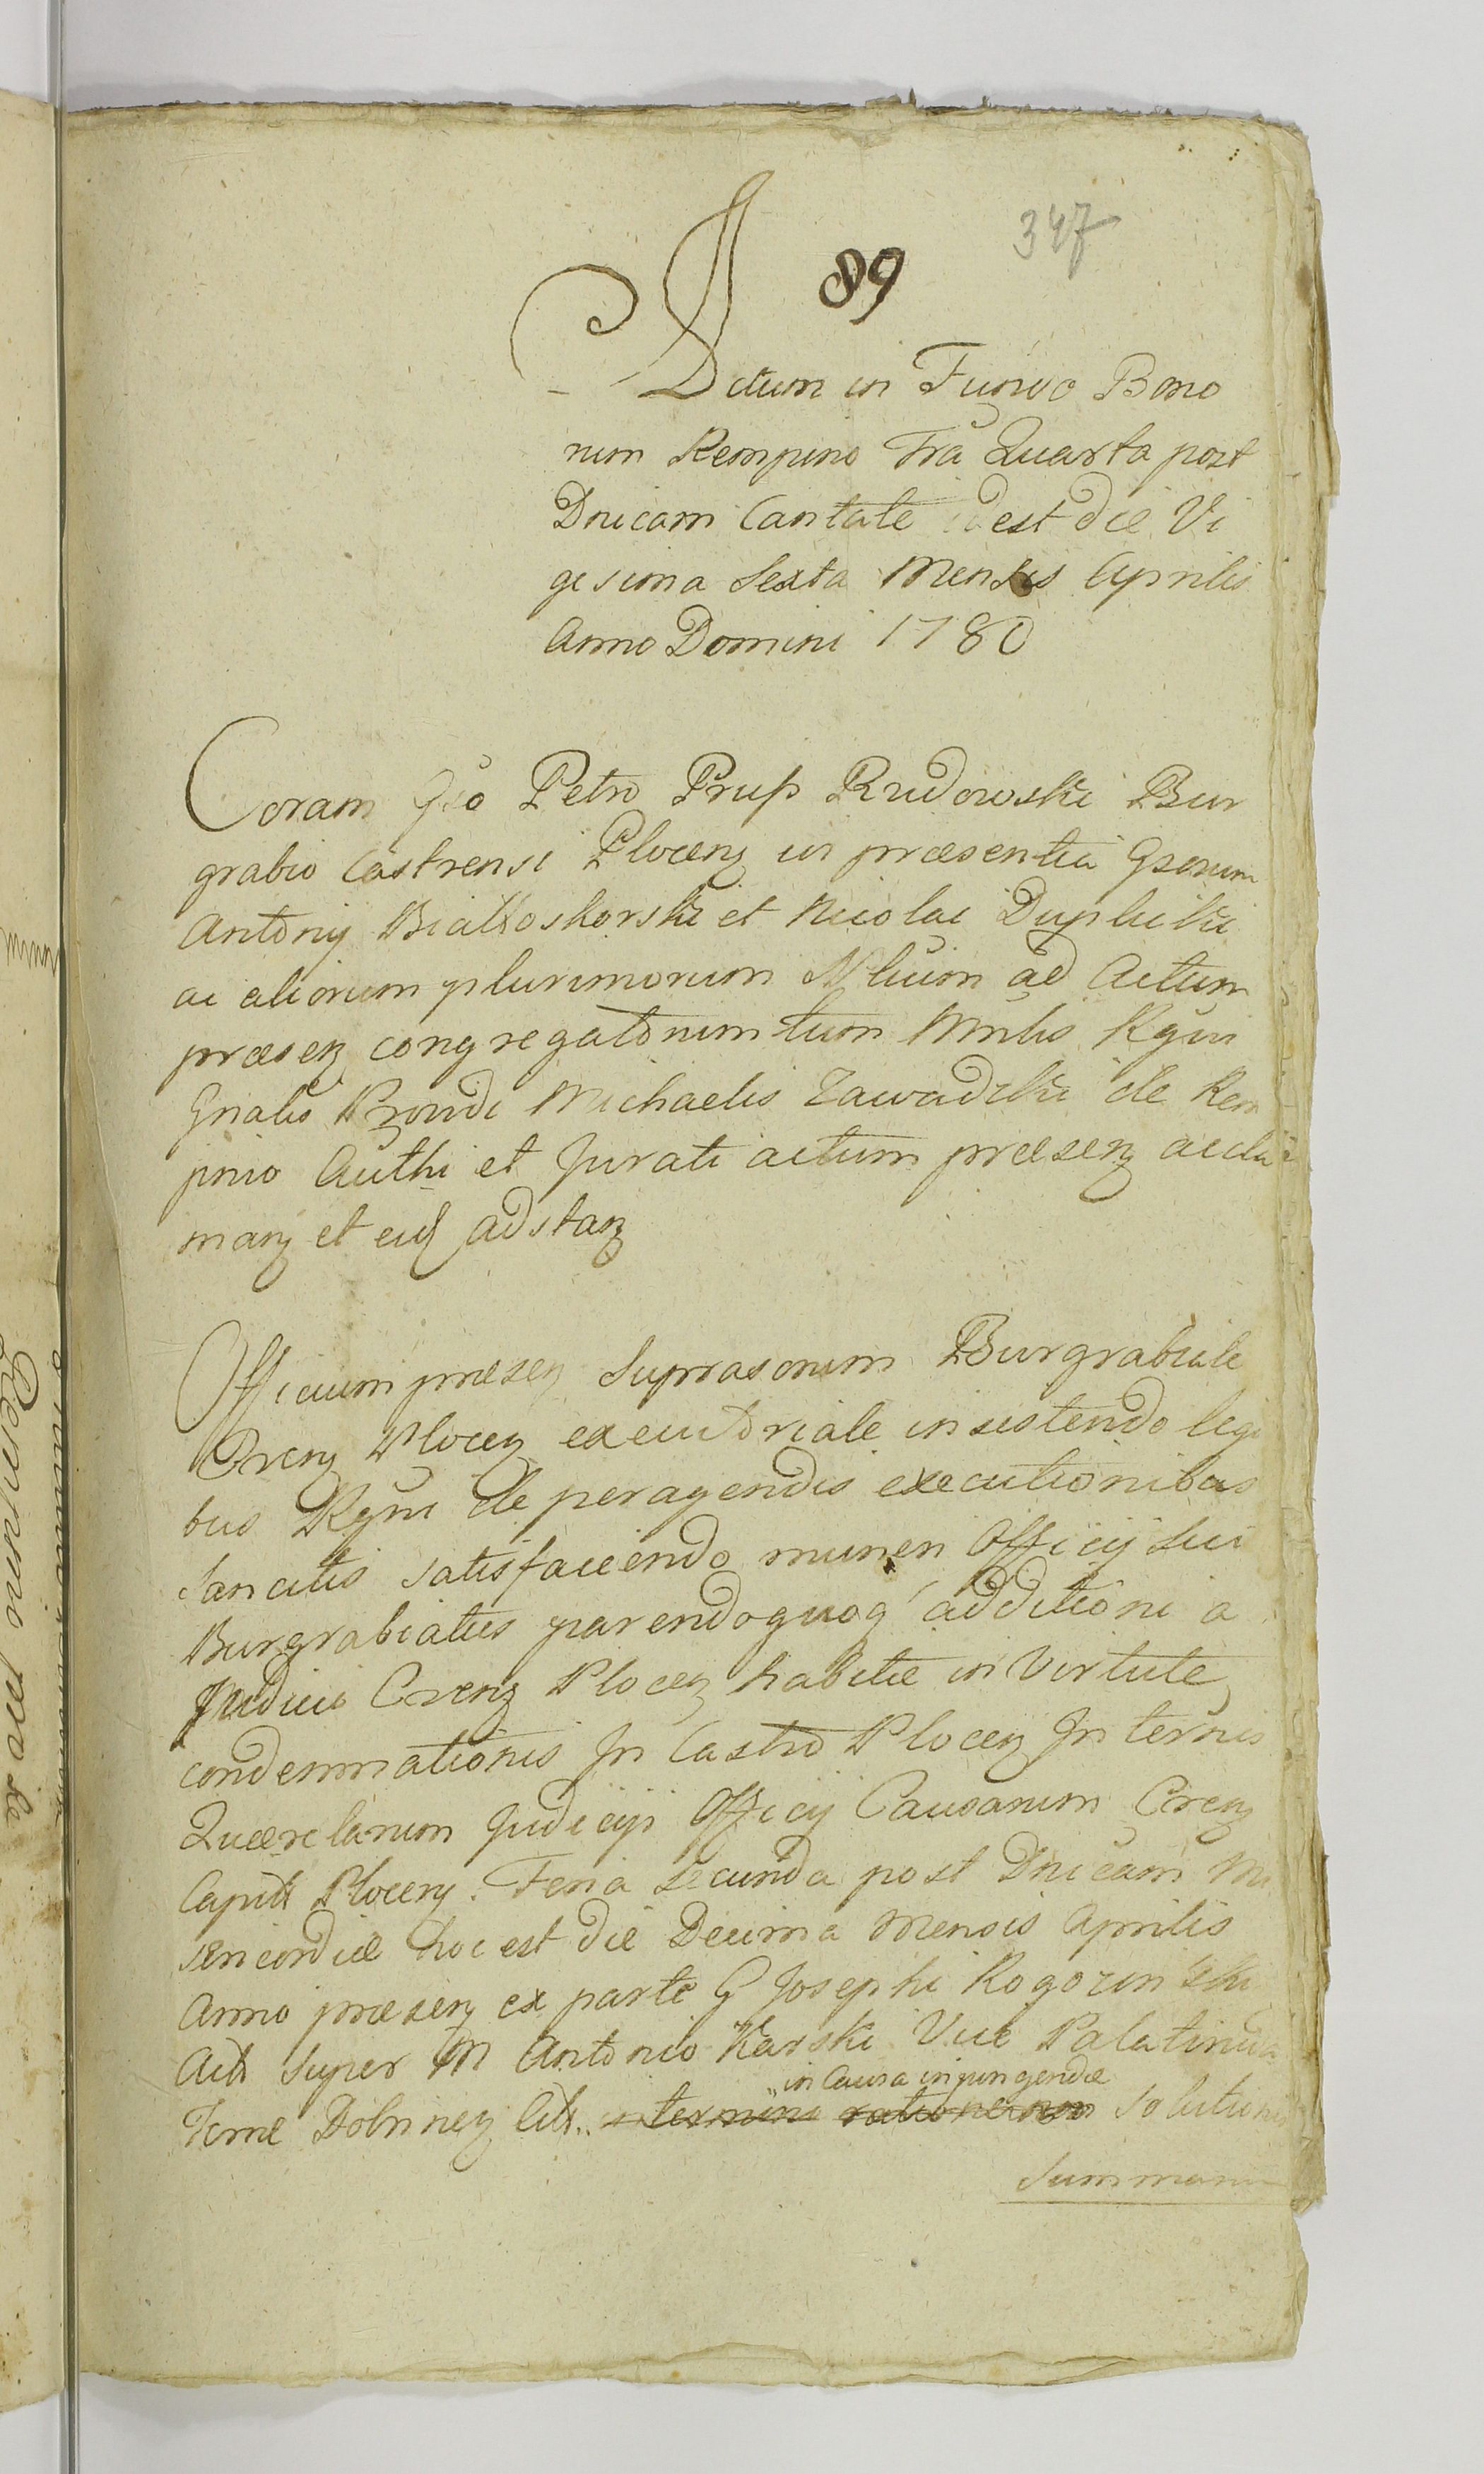 347
89
Actum in Fundo Bono
rum Rempino Fra Quarta post
Dnicam Cantate idest die Vi
gesima Sexta Mensis Aprilis
Anno Domini 1780
Coram Gso Petro Prus Rudowski Bur
grabio Castrensi Plocen in præsentia Gsorum
Antonij Białłoskorski et Nicolai Duplicki
ac aliorum plurimorum Nlium ad Actum
præsen congregatorum tum Mnlis Rgni
Gnalis Providi Michaelis Zawadzki de Rem
pino Authi et Jurati actum præsen accla
man et eid adstan
Officium præsen Suprasorum Burgrabiale
Cren Plocen executoriale insistendo legi
bus Rgni de peragendis executionibus
Sancitis satisfaciendo muneri Officij Sui
Burgrabiatus parendo quoq additioni a
Judicio Cren Plocen habitæ in Virtute
condemnationis In Castro Plocen In ternis
Quærelarum Judicijs Officij Causarum Cren
Capitt Plocen. Feria Secunda post Dnicam Mi
sericordiæ hoc est die Decima Mensis Aprilis
Anno præsen ex parte G Josephi Rogozinski
Act Super M Antonio Karski Vice Palatinida
Terræ Dobrinen Citt
in Causa injungendæ
solutionis
Summarum